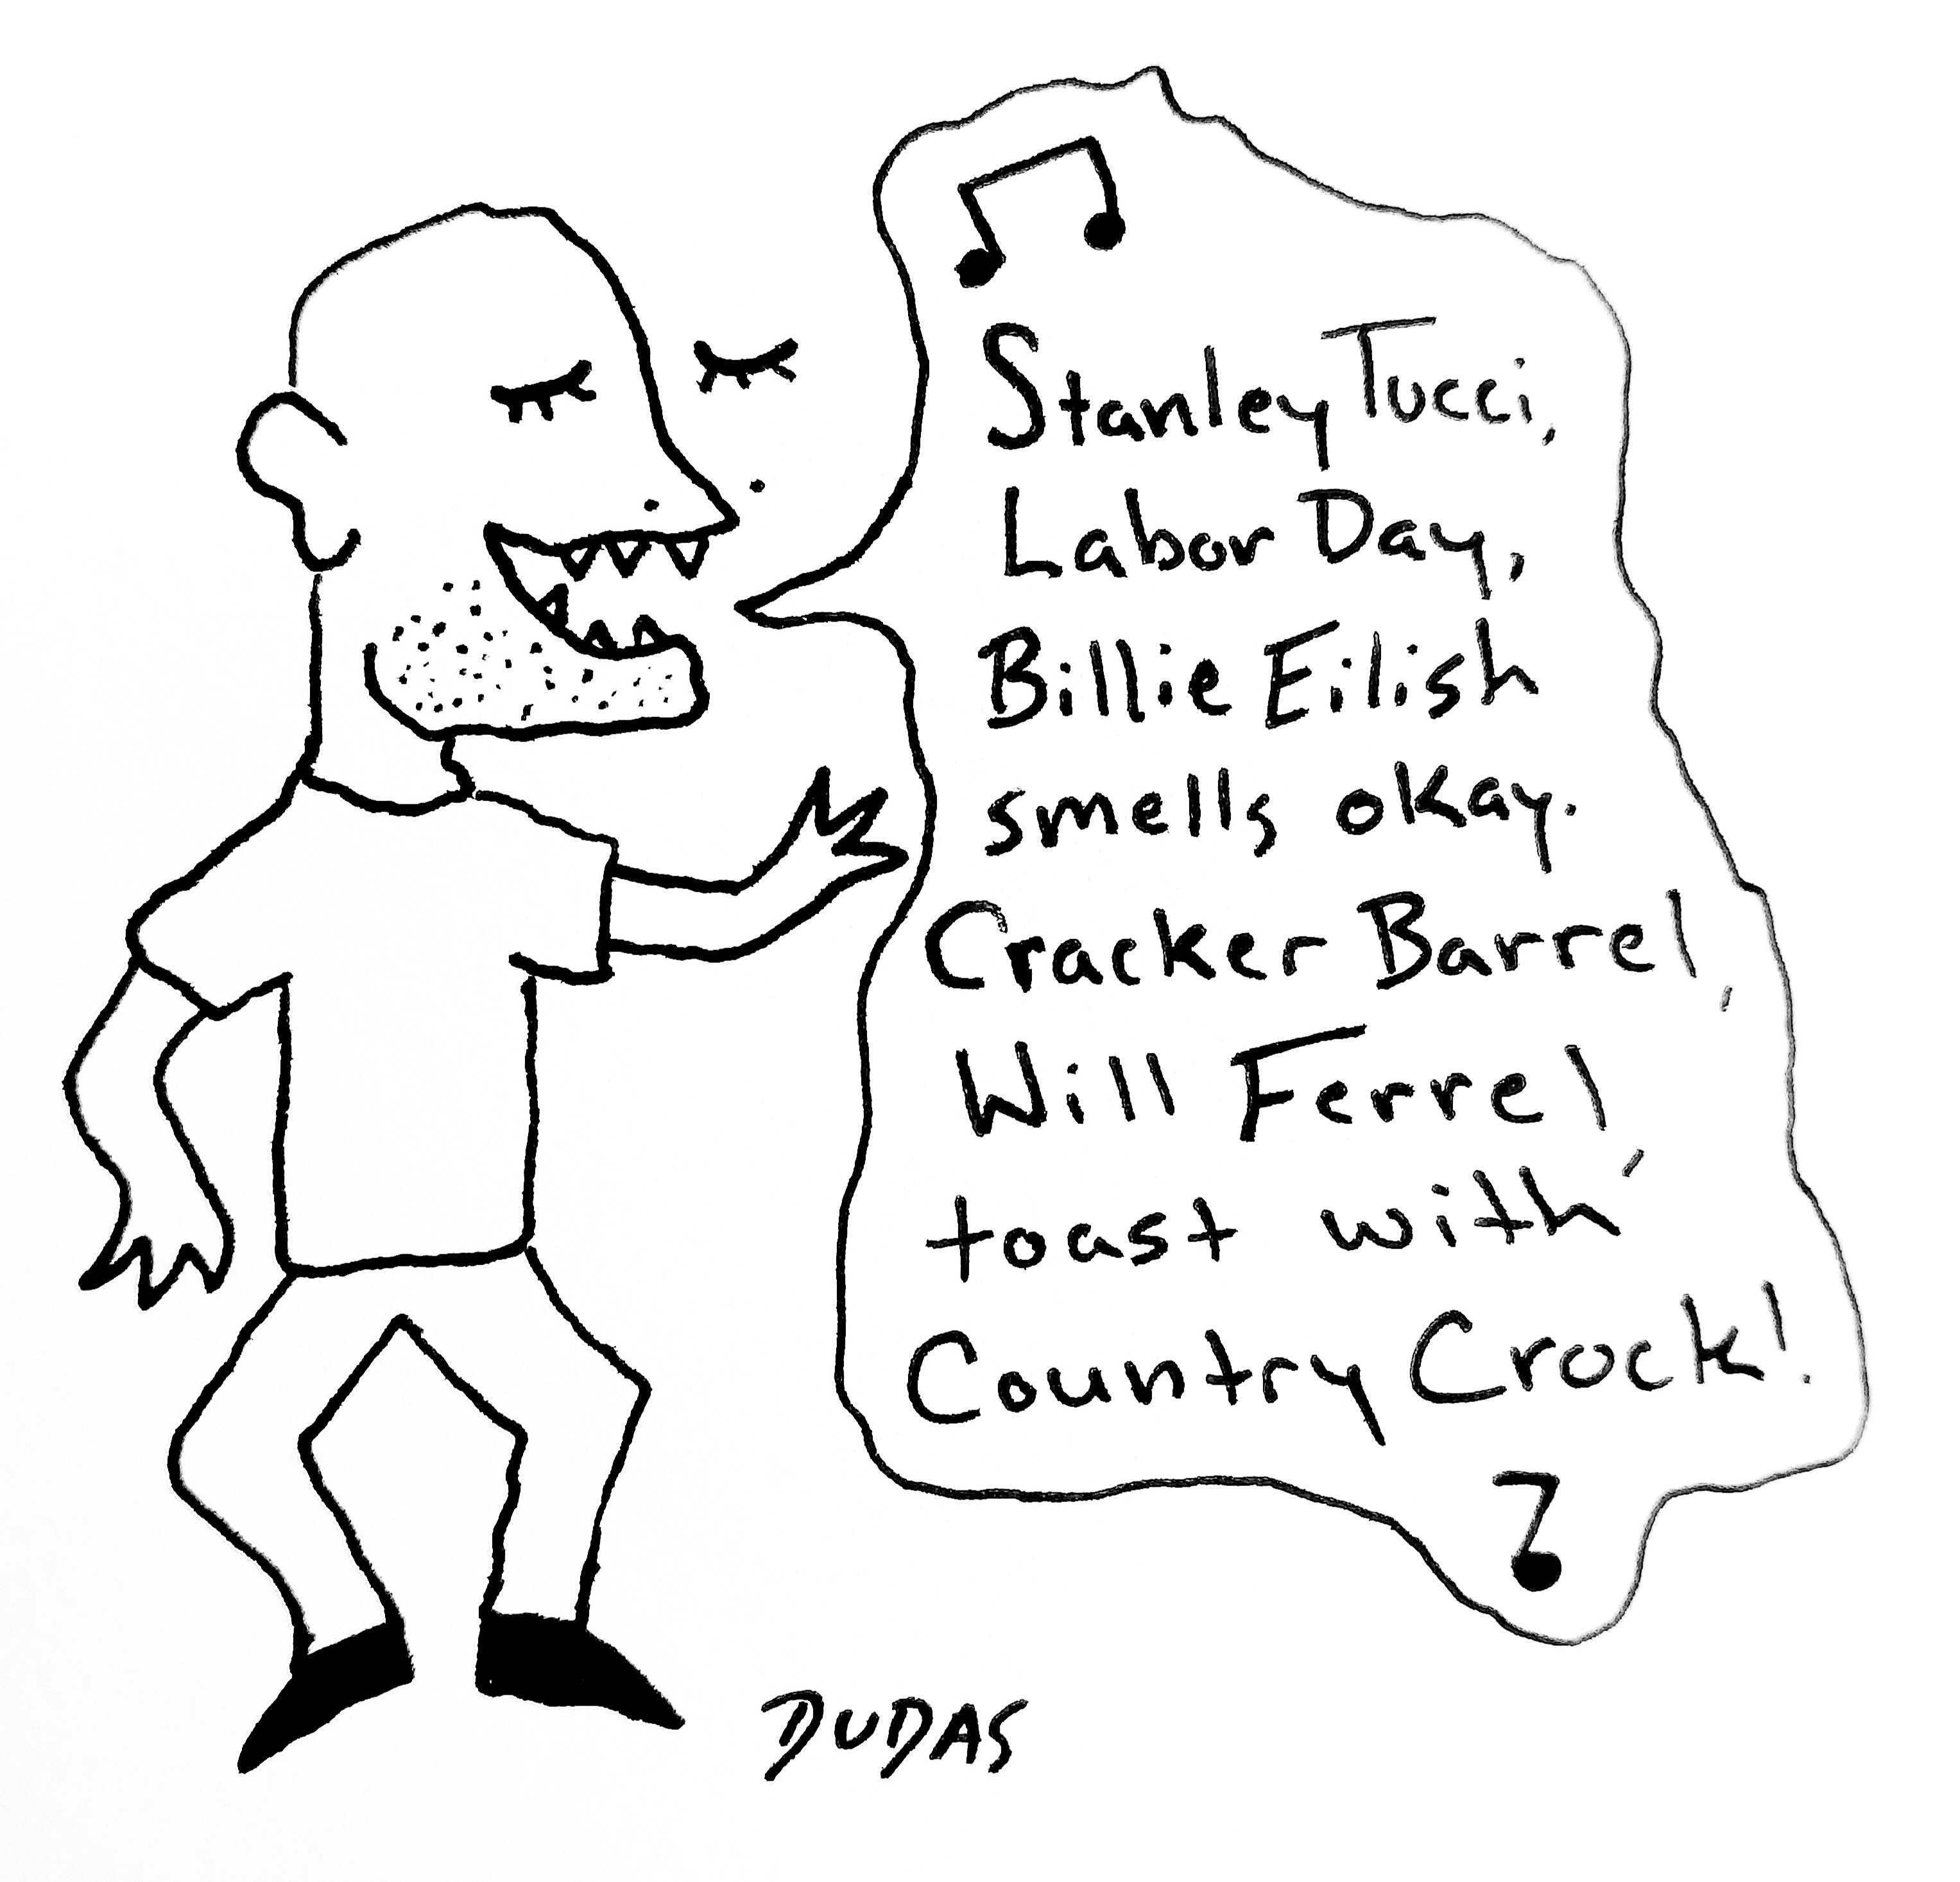 Stanley Tucci,
Labor Day,
Billie Eilish
smells okay.
Cracker Barrel,
Will Ferrel,
toast with
Country Crock!
DUDAS